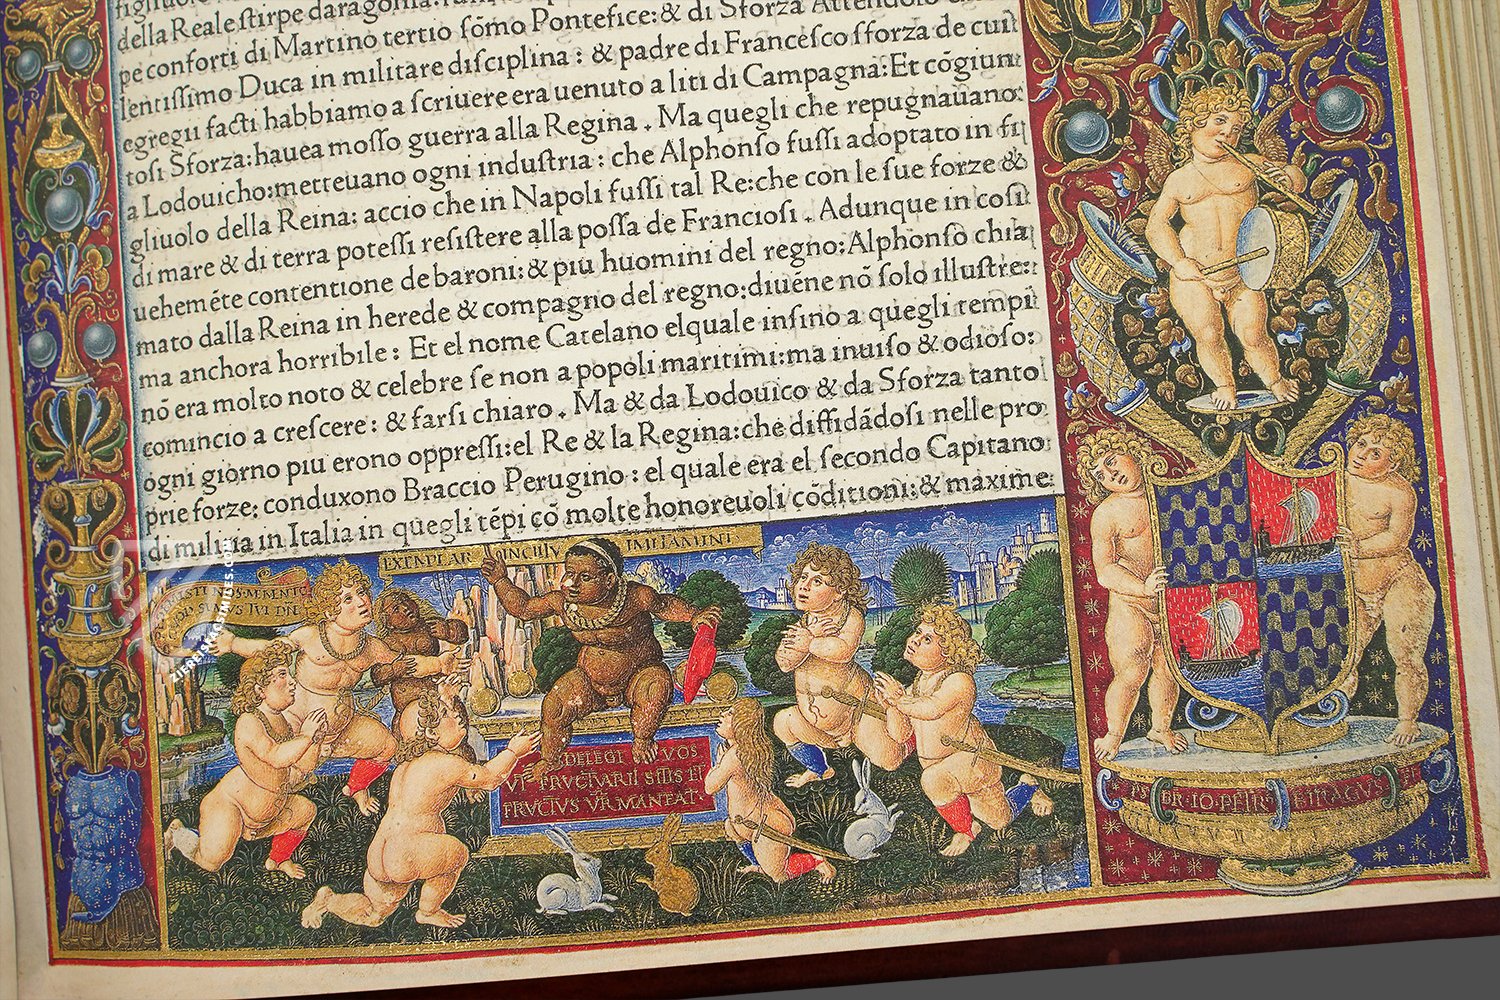 della Reale stirpe daragonia
pe conforti di Martino tertio sõmo Pontefice: & di Sforza Attendolo
lentissimo Duca in militare disciplina: & padre di Francesco sforza de cui
egregii facti habbiamo a scriuere era uenuto a liti di Campagna: Et cõgiunt
tosi Sforza: hauea mosso guerra alla Regina. Ma quegli che repugnauano
a Lodouicho: metteuano ogni industria: che Alphonso fussi adoptato in fi
gliuolo della Reina: accio che in Napoli fussi tal Re: che con le sue forze &
di mare & di terra potessi resistere alla possa de Franciosi. Adunque in cosi
uehemẽte contentione de baroni: & piu huomini del regno: Alphonso chia
mato dalla Reina in herede & compagno del regno: diuẽne nõ solo illustre:
ma anchora horribile: Et el nome Catelano elquale insino a quegli tempi
nõ era molto noto & celebre se non a popoli maritimi: ma inuiso & odioso:
comincio a crescere: & farsi chiaro. Ma & da Lodouico & da Sforza tanto
ogni giorno piu erono oppressi: el Re & la Regina: che diffidãdosi nelle pro
prie forze: conduxono Braccio Perugino: el quale era el secondo Capitano
di militia in Italia in quegli tẽpi cõ molte honoreuoli cõditioni: & maxime
EXENPLAR IMITAMINI
MEMENTO
DELEGI VOS
VT FRVCTVARII SITIS ET
FRVCTVS VR MANEAT
IO PETR BIRAGVS
ZIEREISFACSIMILES.COM